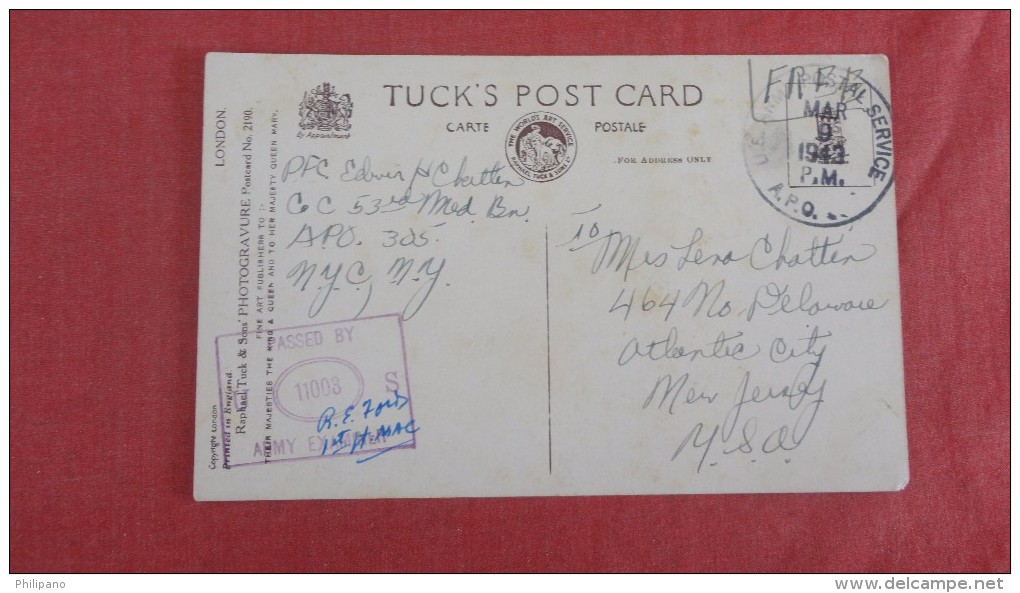 TUCK'S POST CARD
CARTE POSTALE
By Appointment
THE WORLD'S ART SERVICE
RAPHAEL TUCK & SONS LTD
FOR ADDRESS ONLY
FREE
U.S. POSTAL SERVICE
MAR
9
1943
P.M.
A.P.O.
PFC Edwin H Chatten
Co C 53rd Med Bn.
APO. 305.
N.Y.C, N.Y.
To
Mrs Lena Chatten
464 No Delaware
Atlantic City
New Jersey
U.S.A.
LONDON.
Raphael Tuck & Sons' PHOTOGRAVURE Postcard No. 2190.
FINE ART PUBLISHERS TO :-
THEIR MAJESTIES THE KING & QUEEN AND TO HER MAJESTY QUEEN MARY.
Copyright London
Printed in England.
PASSED BY
U 11008 S
ARMY EXAMINER
R.E. Ford
1st Lt MAC
Philipano
www.delcampe.net